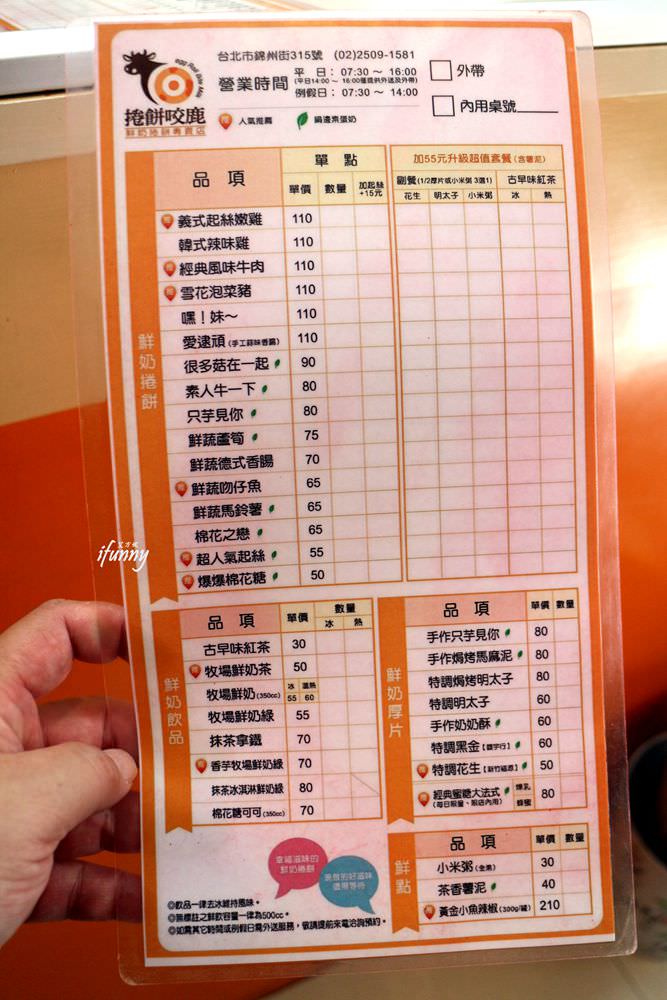 台北市錦州街315號 (02)2509-1581
營業時間 平 日：07:30 ~ 16:00
(平日14:00 ~ 16:00僅提供外送及外帶)
例假日：07:30 ~ 14:00
外帶
內用桌號
egg Roll Bite Milk
捲餅咬鹿
鮮奶捲餅專賣店
人氣推薦
鍋邊素蛋奶
品 項
單 點
單價 數量 加起絲+15元
加55元升級超值套餐 (含薯泥)
副餐(1/2厚片或小米粥 3選1) 古早味紅茶
花生 明太子 小米粥 冰 熱
鮮奶捲餅
義式起絲嫩雞 110
韓式辣味雞 110
經典風味牛肉 110
雪花泡菜豬 110
嘿！妹～ 110
愛逮頑 (手工蒜味香腸) 110
很多菇在一起 90
素人牛一下 80
只芋見你 80
鮮蔬蘆筍 75
鮮蔬德式香腸 70
鮮蔬吻仔魚 65
鮮蔬馬鈴薯 65
棉花之戀 65
超人氣起絲 55
爆爆棉花糖 50
鮮奶飲品
品 項 單價 數量
冰 熱
古早味紅茶 30
牧場鮮奶茶 50
牧場鮮奶(350cc) 冰 55 溫熱 60
牧場鮮奶綠 55
抹茶拿鐵 70
香芋牧場鮮奶綠 70
抹茶冰淇淋鮮奶綠 80
棉花糖可可(350cc) 70
鮮奶厚片
品 項 單價 數量
手作只芋見你 80
手作焗烤馬麻泥 80
特調焗烤明太子 80
特調明太子 60
手作奶奶酥 60
特調黑金 60
特調花生【新竹福源】 50
經典蜜糖大法式 (每日限量、限店內用) 煉乳 蜂蜜 80
鮮點
品 項 單價 數量
小米粥(全素) 30
茶香薯泥 40
黃金小魚辣椒(300g/罐) 210
幸福滋味的
鮮奶捲餅
還帶等待
◎飲品一律去冰維持風味。
◎無標註之鮮飲容量一律為500cc。
◎如需其它時間或例假日需外送服務，敬請提前來電洽詢預約。
ifunny